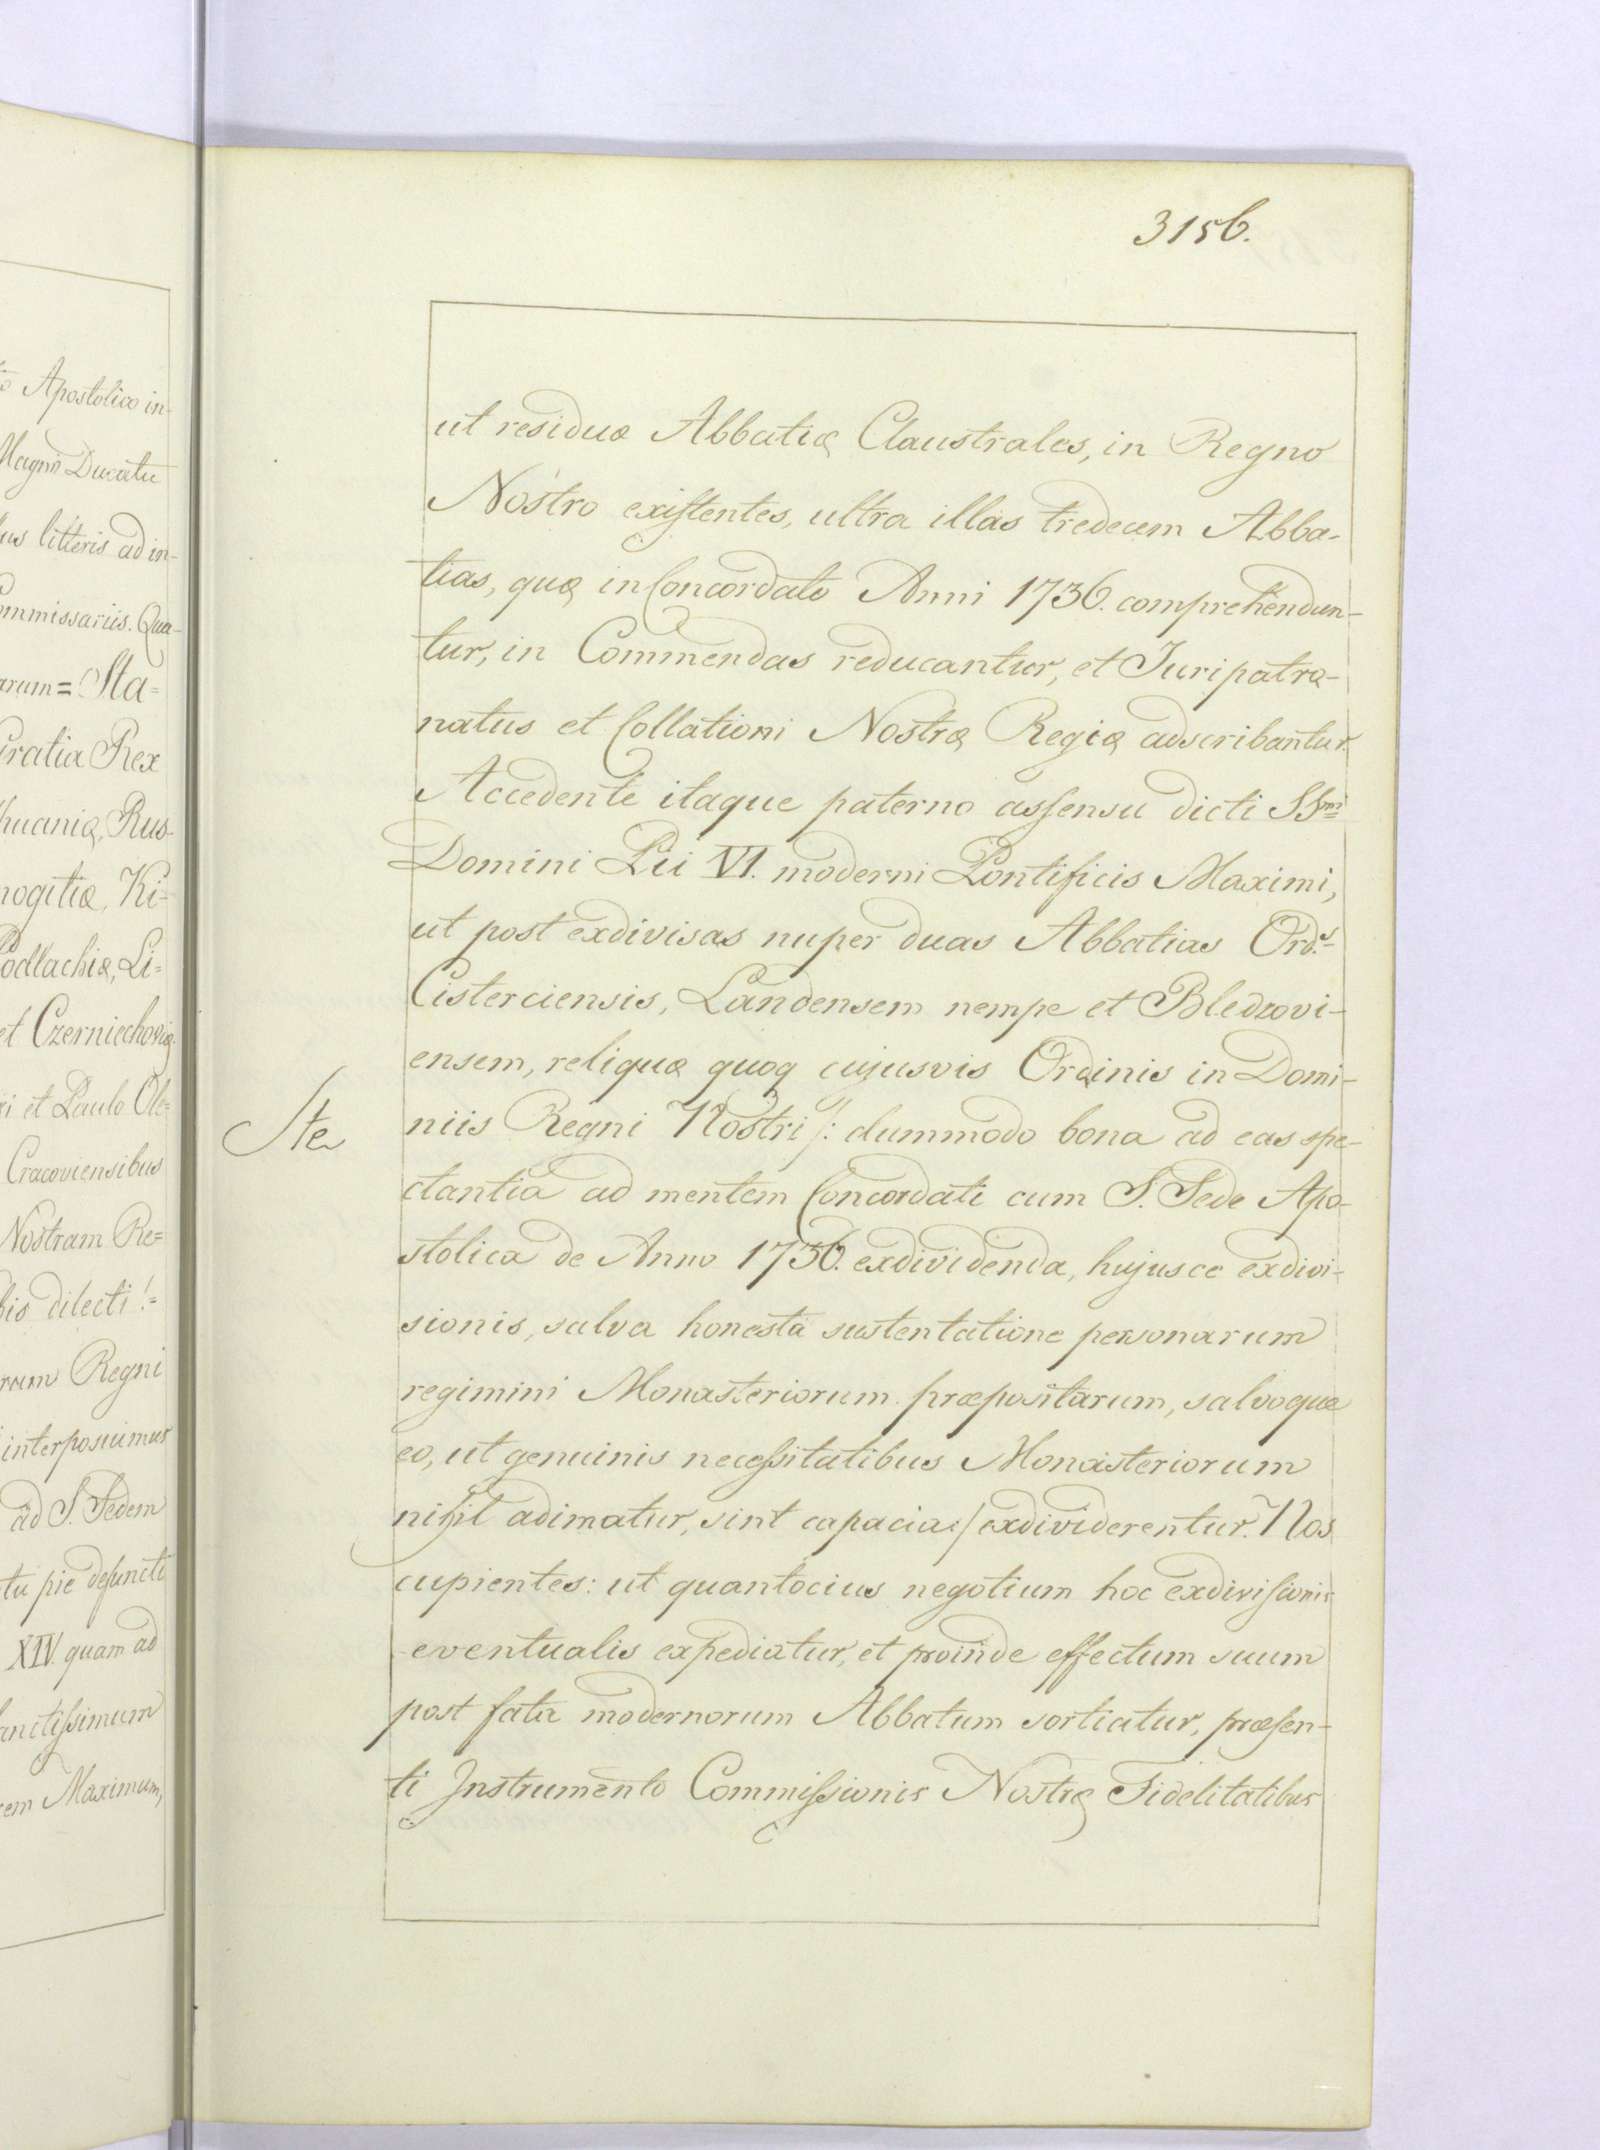 3156.
ut residuæ Abbatiæ Claustrales, in Regno
Nostro existentes, ultra illas tredecem Abba-
tias, quæ in Concordato Anni 1736. comprehendun-
tur, in Commendas reducantur, et Juripatro-
natus et Collationi Nostræ Regiæ adscribantur.
Accedente itaque paterno assensu dicti SSmi
Domini Pii VI. moderni Pontificis Maximi,
ut post exdivisas nuper duas Abbatias Ord.s
Cisterciensis, Landensem nempe et Bledzovi-
ensem, reliquæ quoq cujusvis Ordinis in Domi-
niis Regni Nostri /: dummodo bona ad eas spe-
ctantia ad mentem Concordati cum S. Sede Apo-
stolica de Anno 1736. exdividenda, hujusce exdivi-
sionis, salva honesta sustentatione personarum
regimini Monasteriorum præpositarum, salvoque
eo, ut genuinis necessitatibus Monasteriorum
nihil adimatur, sint capacia :/ exdividerentur. Nos
cupientes: ut quantocius negotium hoc exdivisionis
eventualis expediatur, et proinde effectum suum
post fata modernorum Abbatum sortiatur, præsen-
ti Instrumento Commissionis Nostræ Fidelitatibus
Ste
Apostolico in-
Magni Ducatu
litteris ad in-
ommissariis. Qua-
arum = Sta=
Gratia Rex
huaniæ, Rus-
mogitiæ, Ki-
Podlachiæ, Li=
et Czerniechoviæ
et Paulo Ole=
Cracoviensibus
Nostram Re=
dilecti!=
Regni
interposuimus
ad S. Sedem
tu pie defuncti
XIV. quam ad
anctissimum
em Maximum,